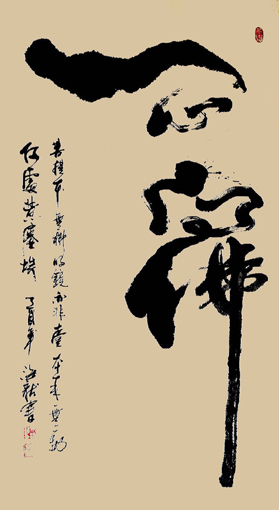 一心向佛
菩提本無樹明鏡亦非臺本來無一物
何處惹塵埃 丁酉年 書